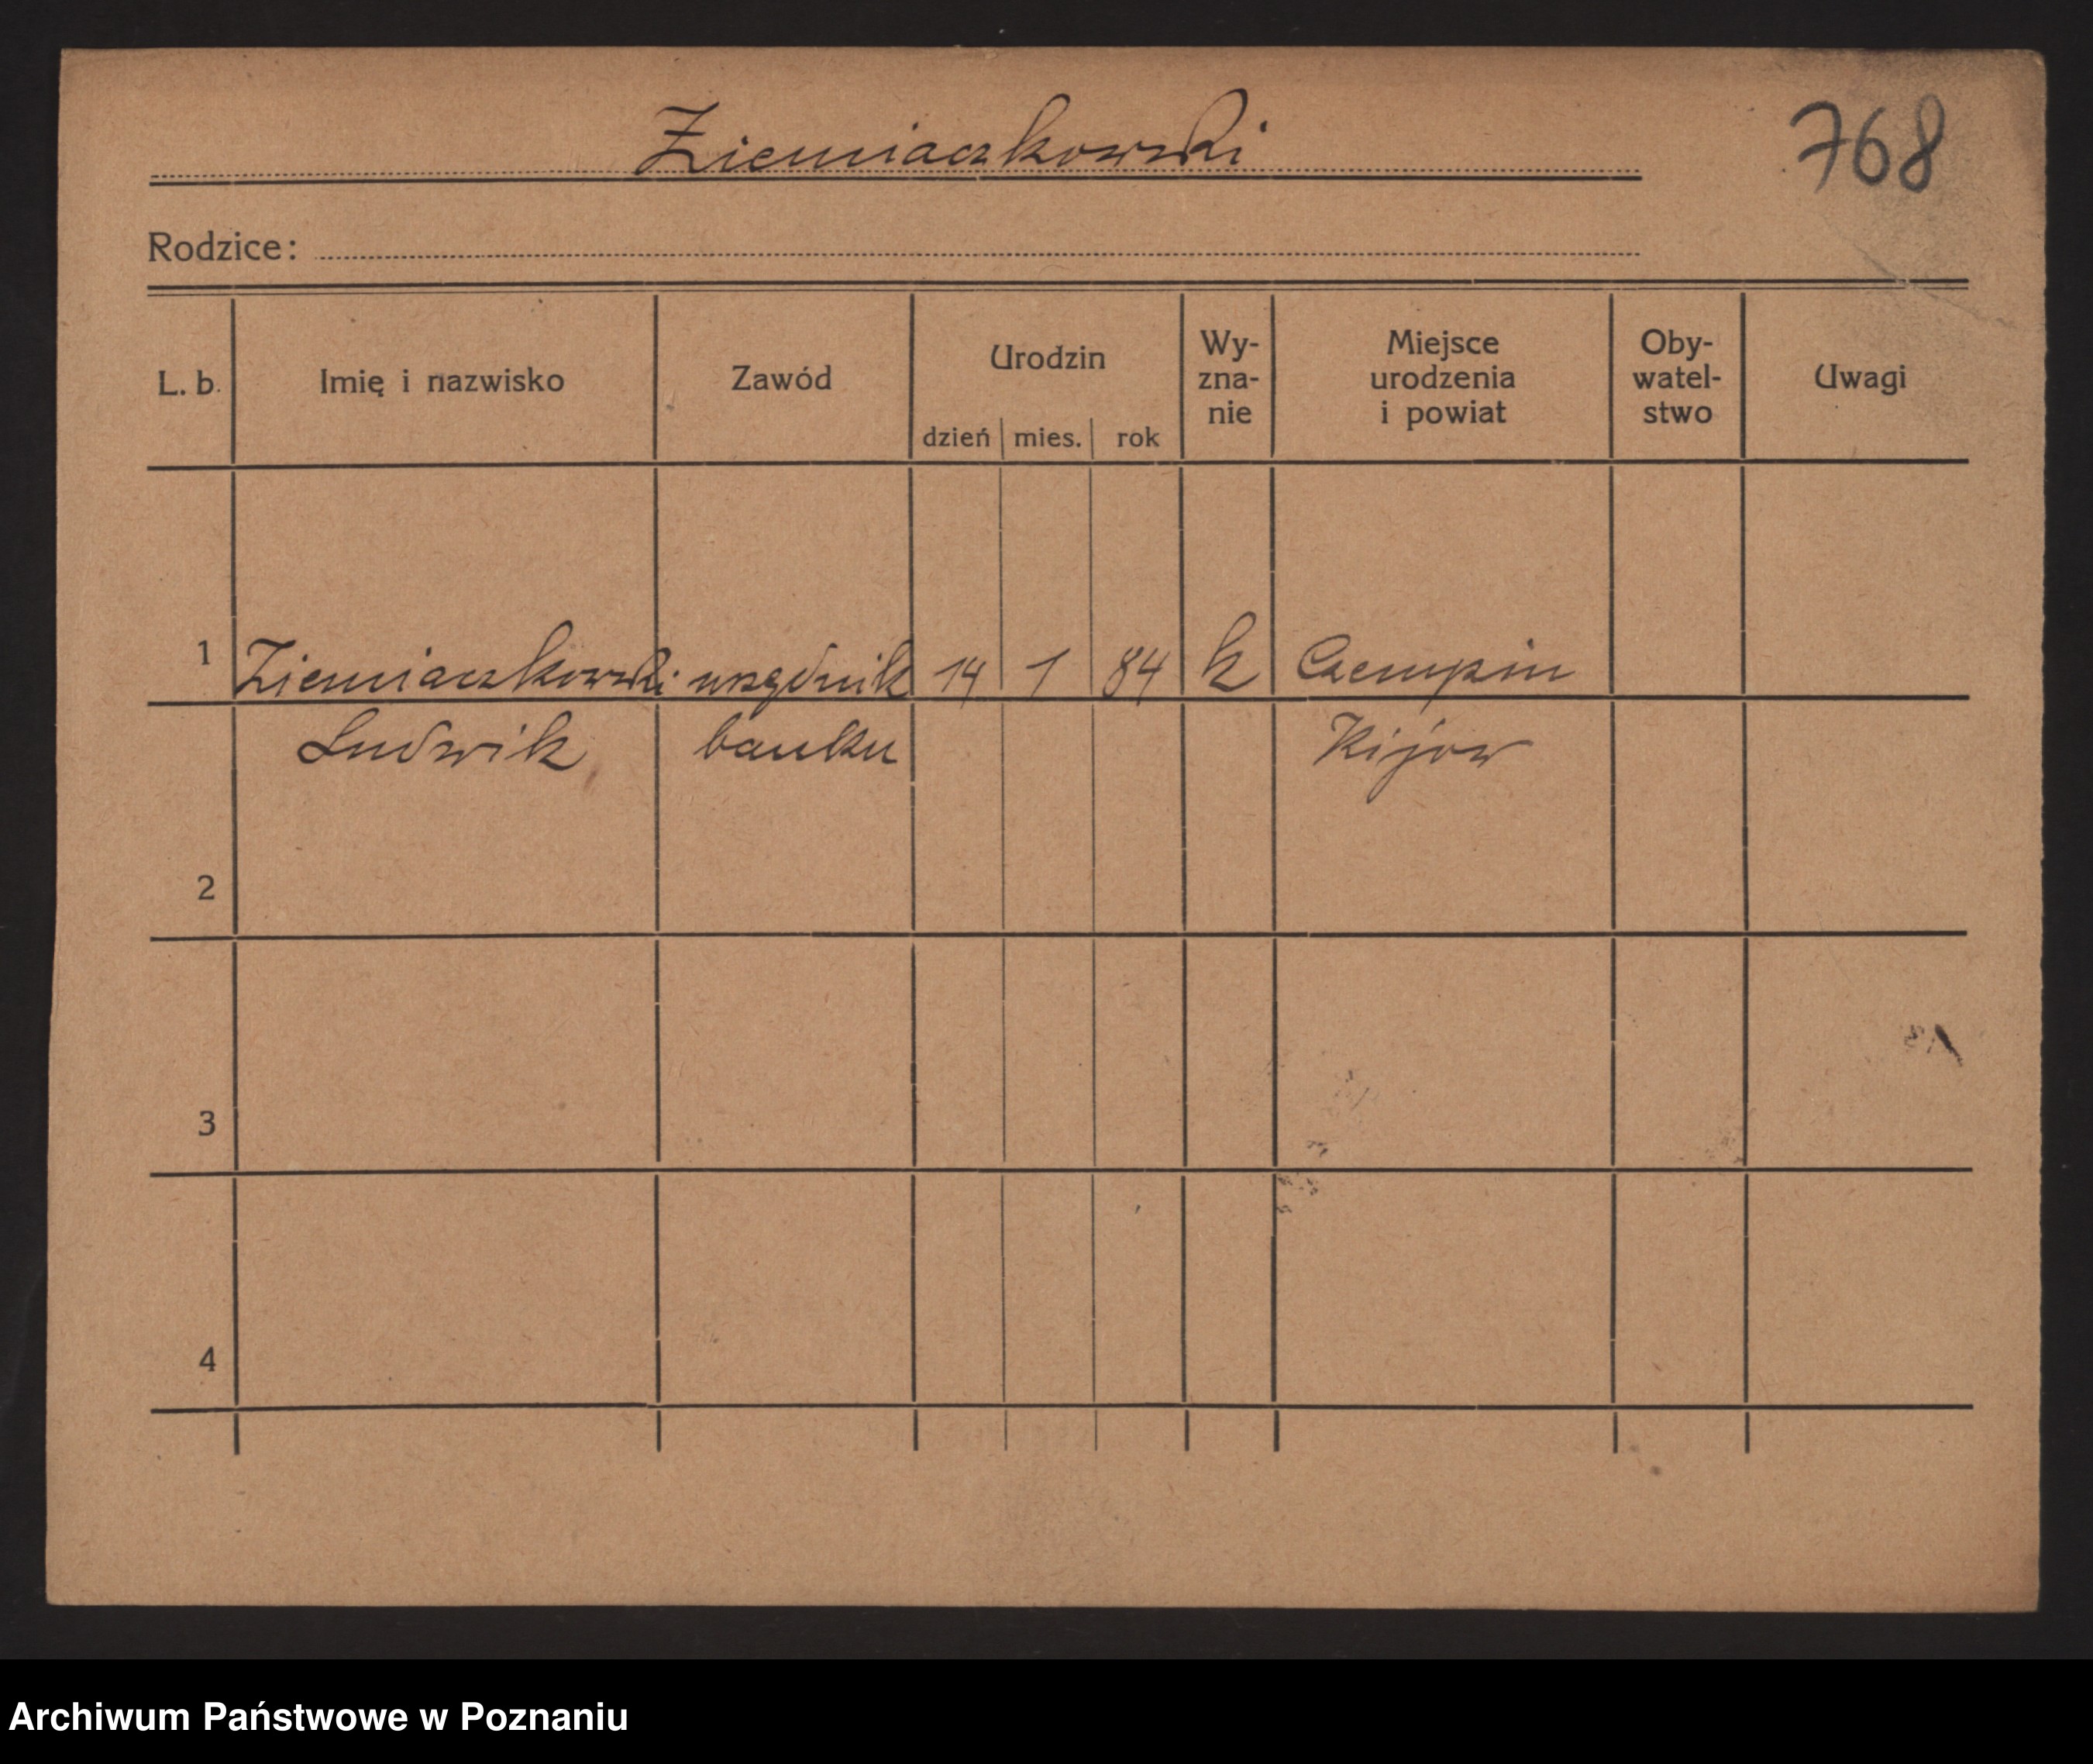 Ziemiaczkowski
768
Rodzice:
L. b.
Imię i nazwisko
Zawód
Urodzin
dzień mies. rok
Wy-
zna-
nie
Miejsce
urodzenia
i powiat
Oby-
watel-
stwo
Uwagi
1 Ziemiaczkowski urzędnik 14 1 84 k Czempin
Ludwik banku Kijow
2
3
4
Archiwum Państwowe w Poznaniu